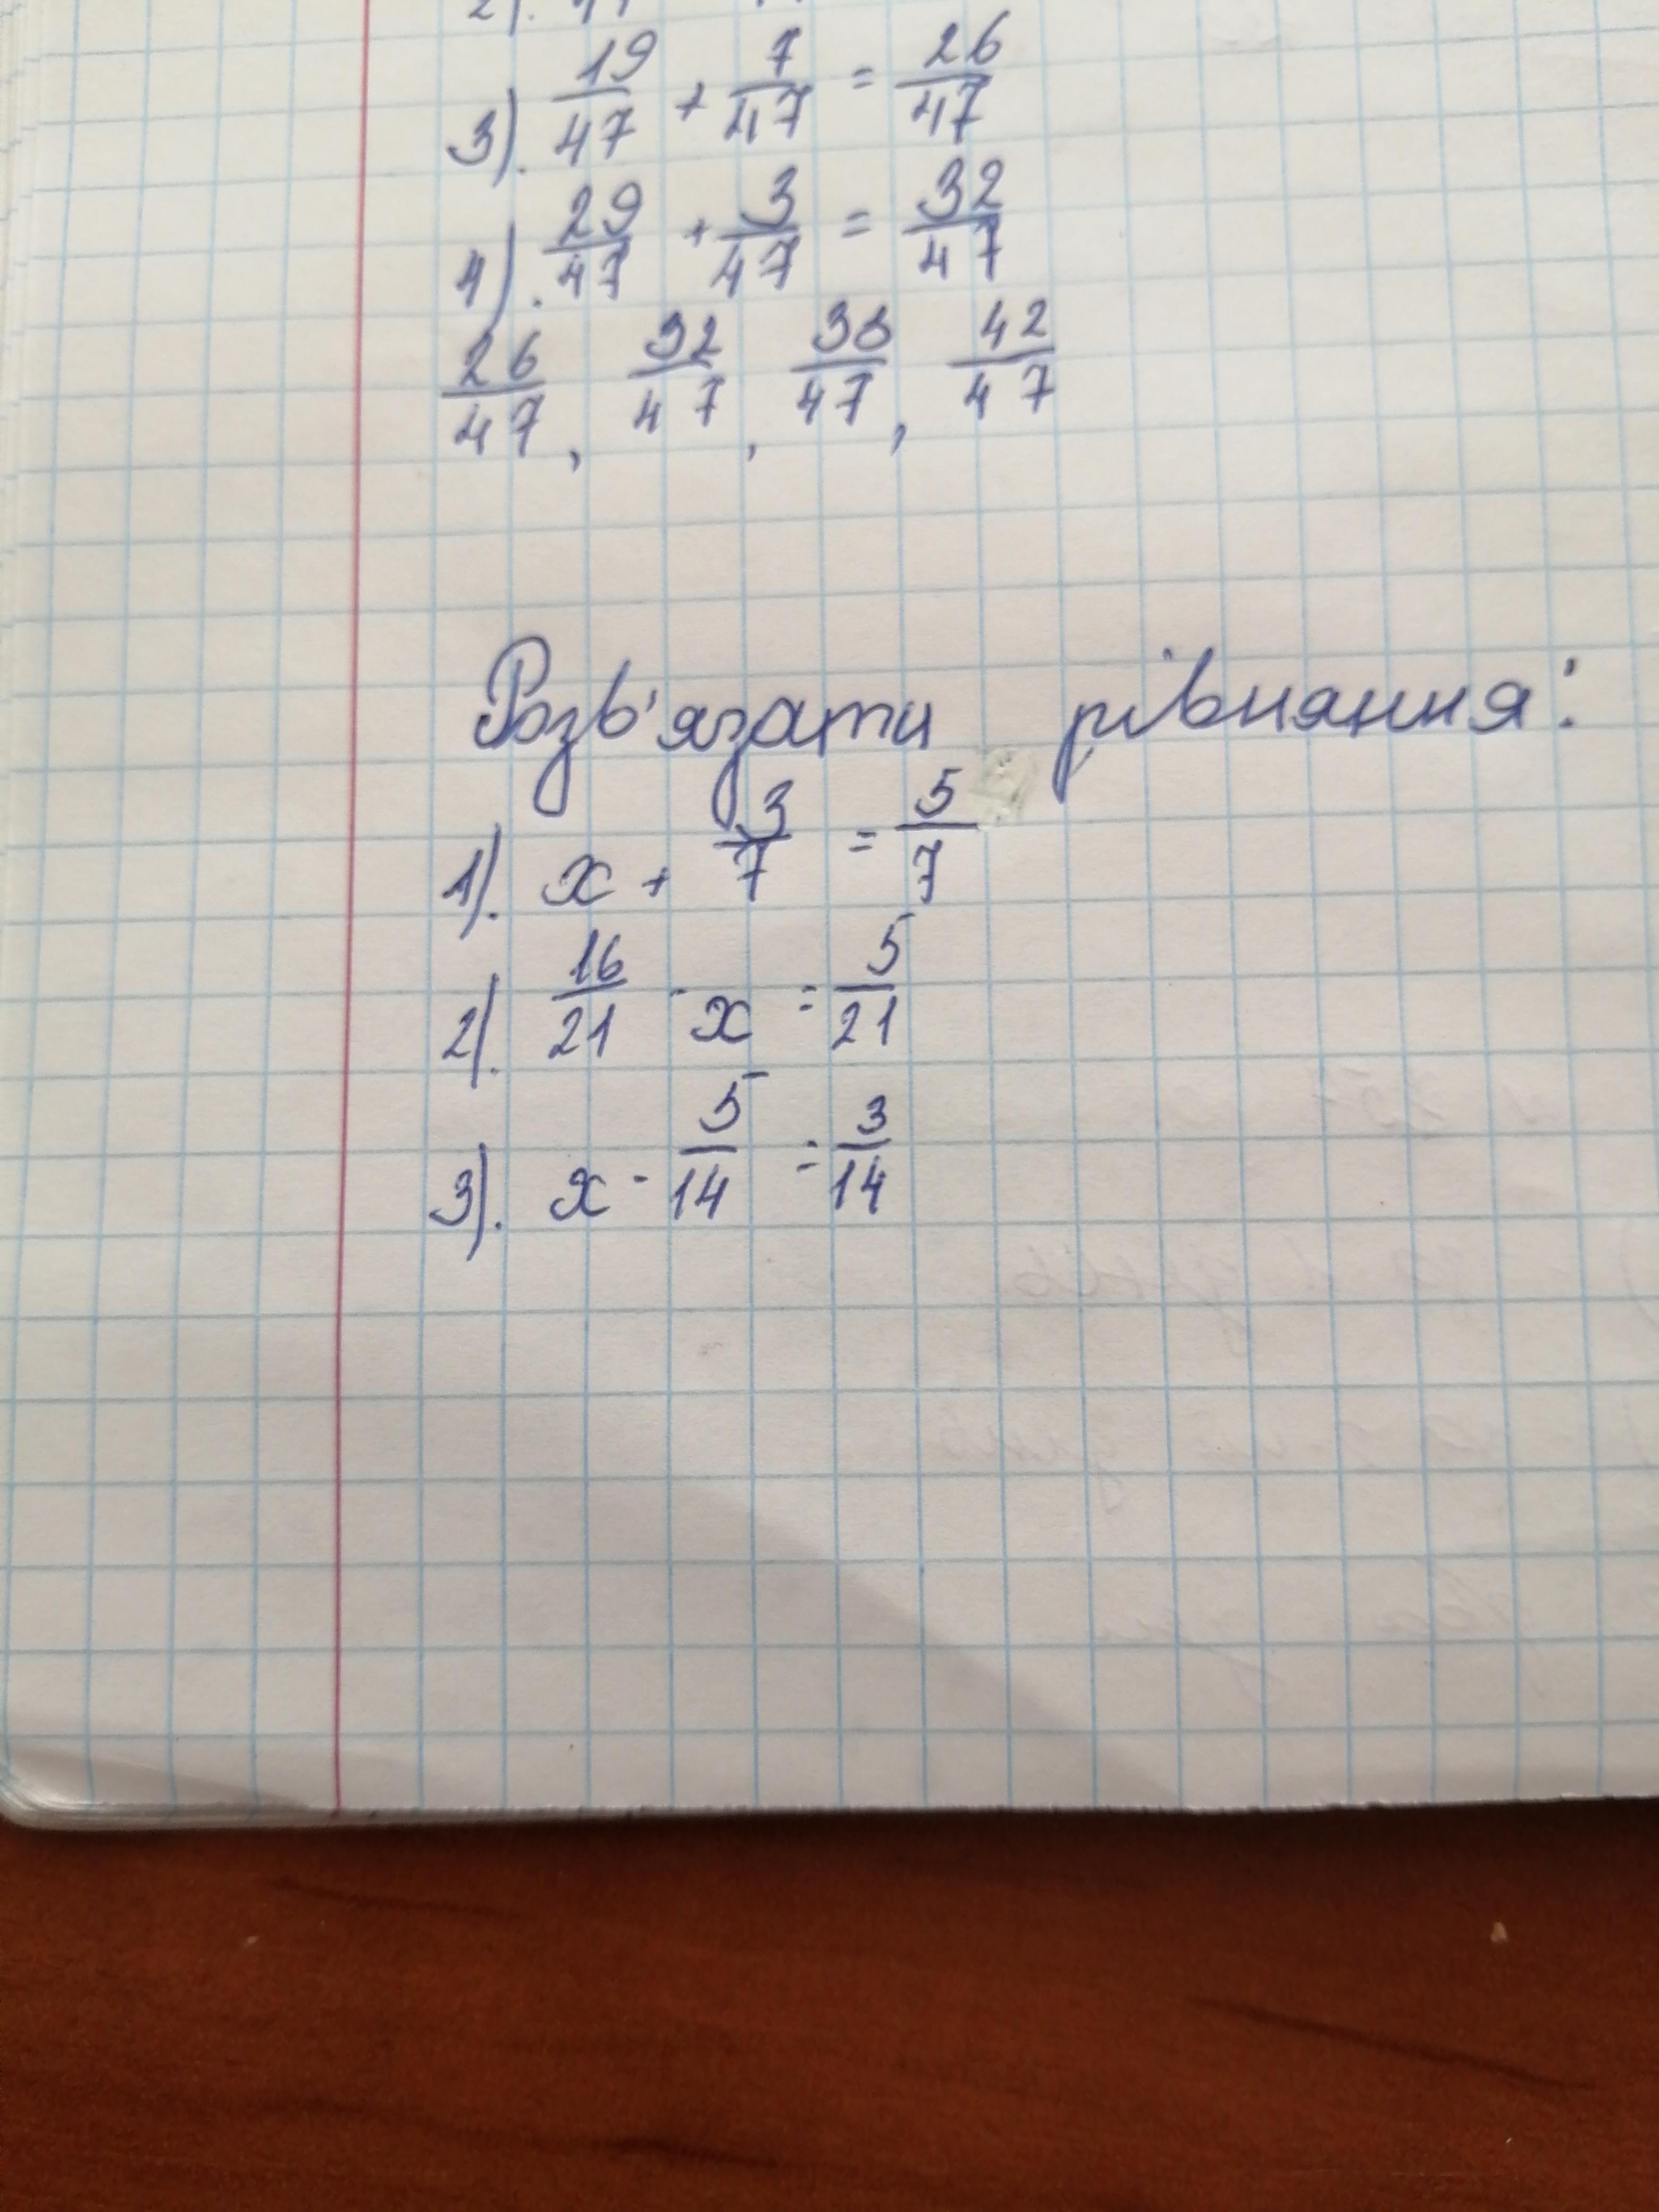 3). 19/47 + 7/47 = 26/47
4). 29/47 + 3/47 = 32/47
26/47, 32/47, 38/47, 42/47
Розв'язати рівняння:
1). x + 3/7 = 5/7
2). 16/21 - x = 5/21
3). x - 5/14 = 3/14